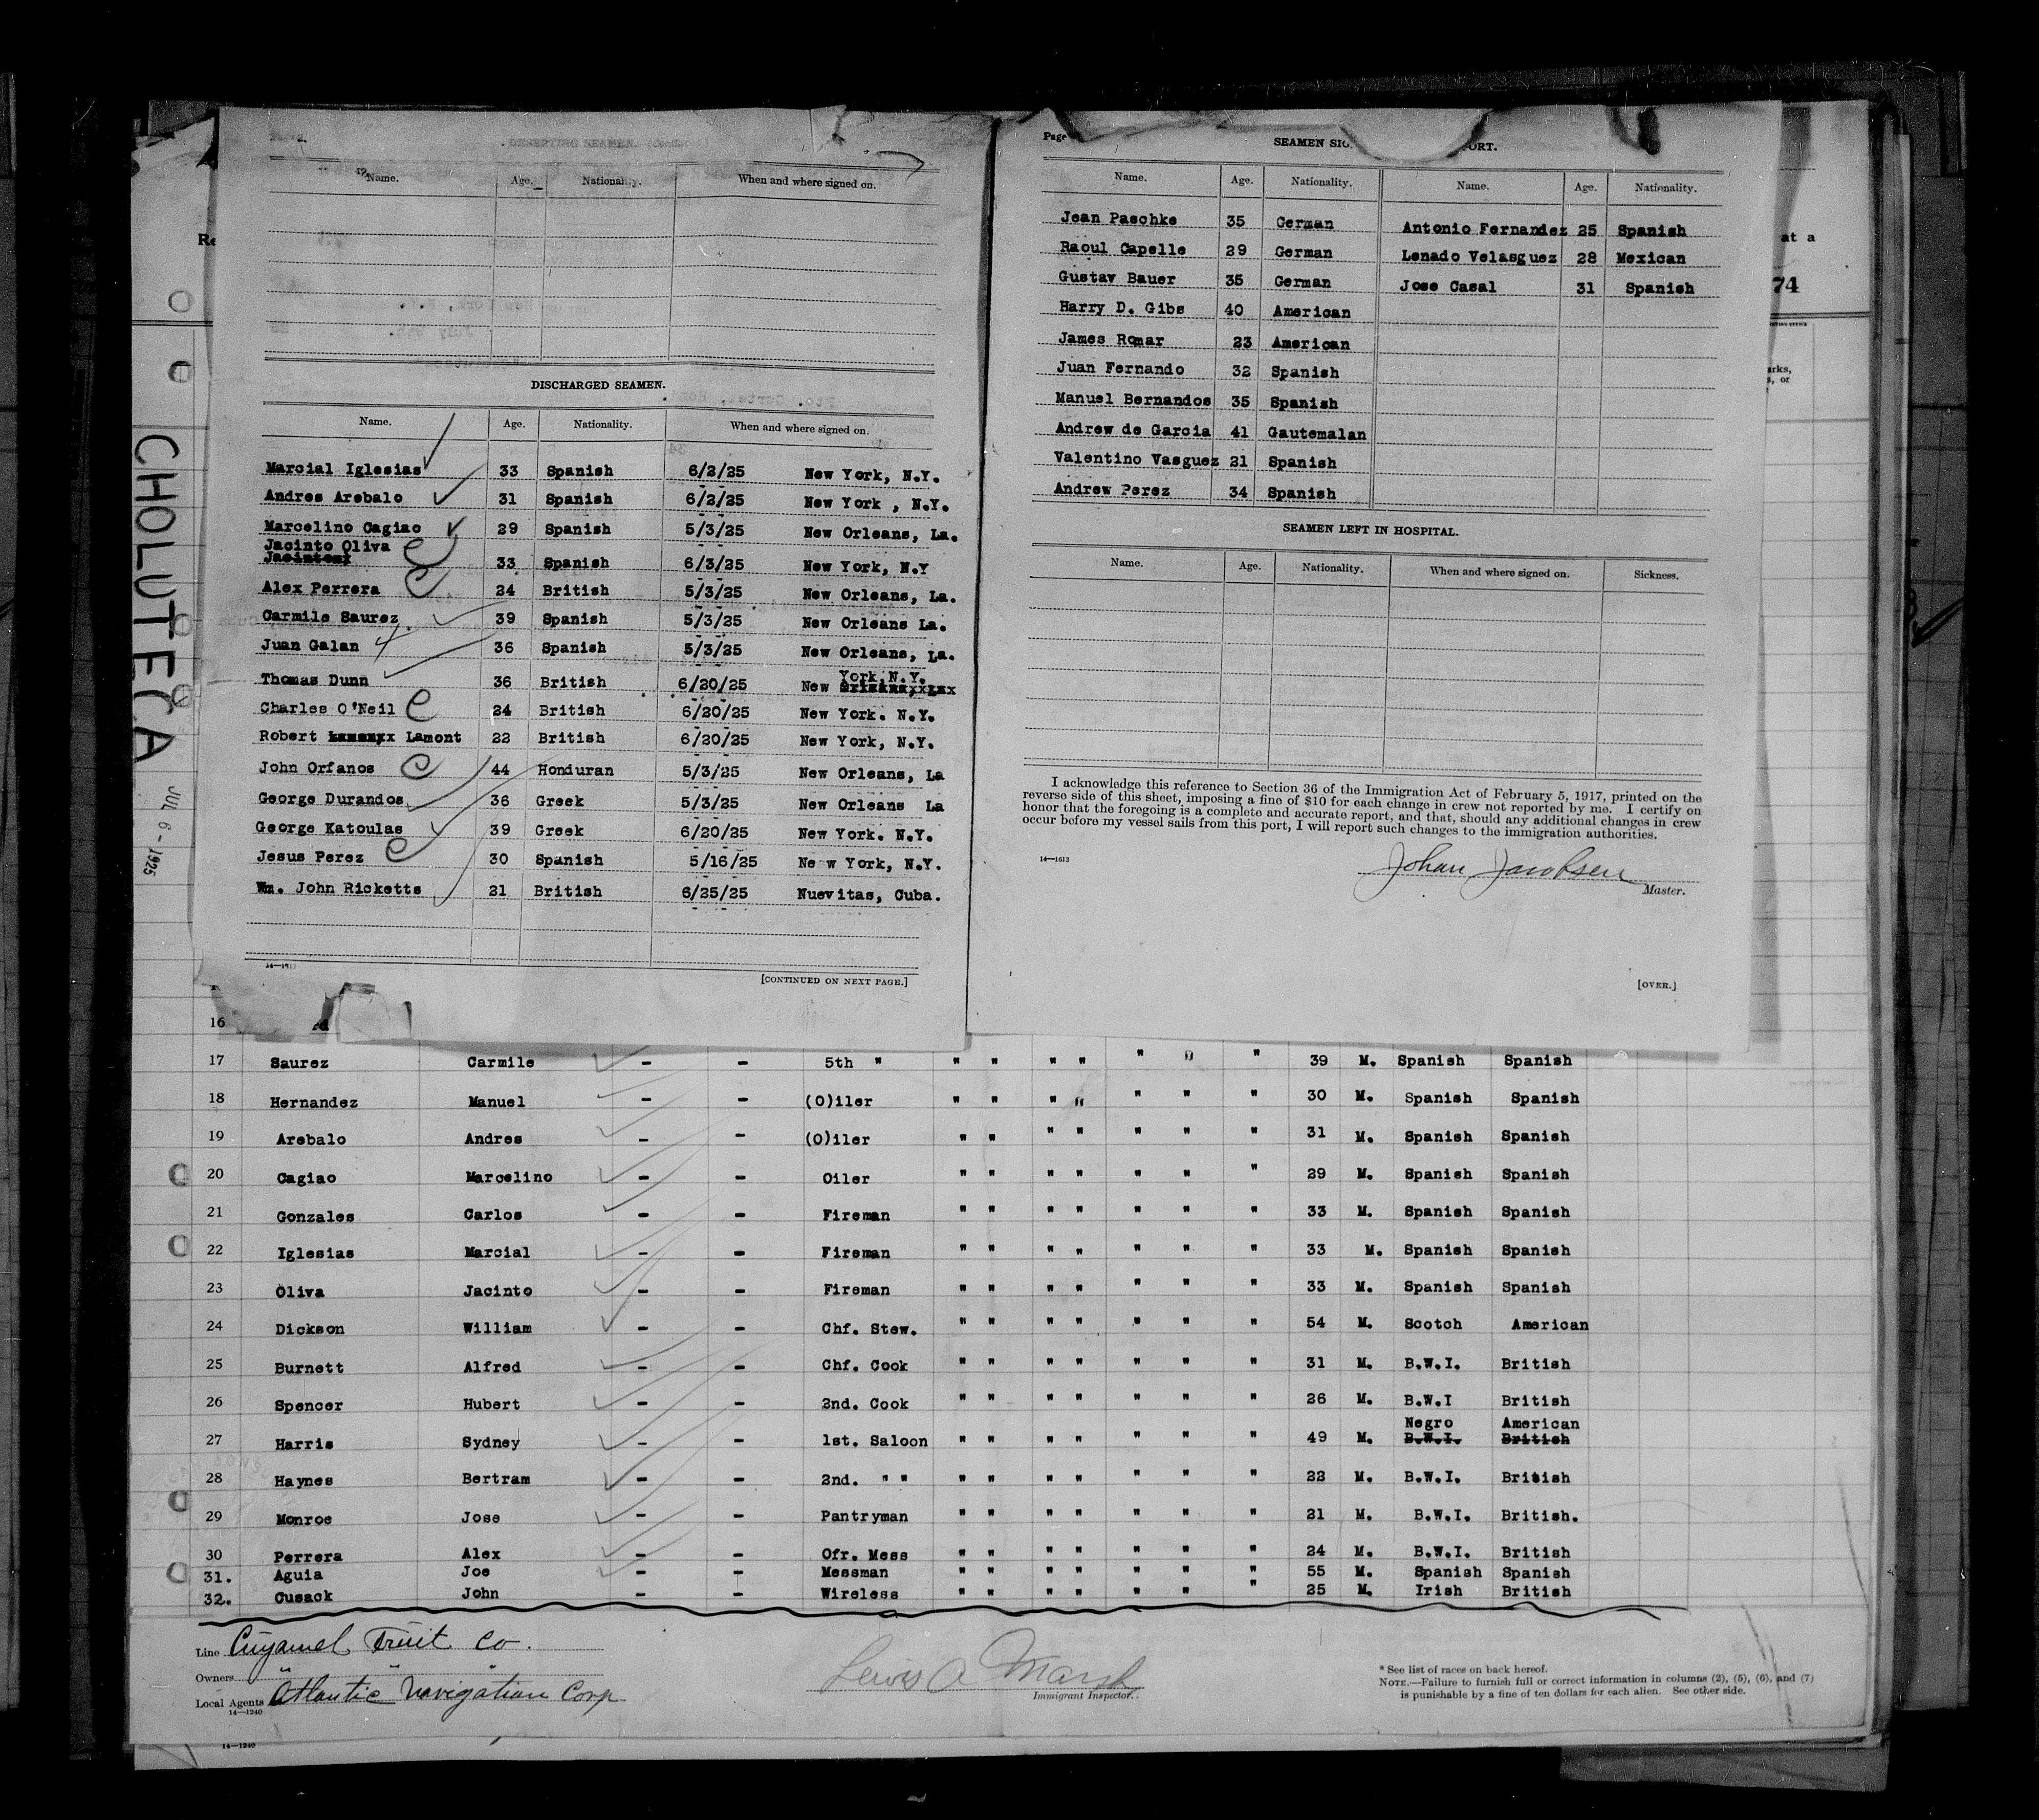 DESERTING SEAMEN.
Name. Age. Nationality. When and where signed on.
DISCHARGED SEAMEN.
Name. Age. Nationality. When and where signed on.
Marcial Iglesias 33 Spanish 6/2/25 New York, N.Y.
Andres Arebalo 31 Spanish 6/2/25 New York , N.Y.
Marcelino Cagiao 29 Spanish 5/3/25 New Orleans, La.
Jacinto Oliva 33 Spanish 6/3/25 New York, N.Y
Alex Perrera 24 British 5/3/25 New Orleans, La.
Carmile Saurez 39 Spanish 5/3/25 New Orleans La.
Juan Galan 36 Spanish 5/3/25 New Orleans, La.
Thomas Dunn 36 British 6/20/25 New York, N.Y.
Charles O'Neil 24 British 6/20/25 New York. N.Y.
Robert Lamont 22 British 6/20/25 New York, N.Y.
John Orfanos 44 Honduran 5/3/25 New Orleans, La
George Durandos 36 Greek 5/3/25 New Orleans La
George Katoulas 39 Greek 6/20/25 New York. N.Y.
Jesus Perez 30 Spanish 5/16/25 Ne w York, N.Y.
Wm. John Ricketts 21 British 6/25/25 Nuevitas, Cuba.
[CONTINUED ON NEXT PAGE.]
Page
SEAMEN SIG ORT.
Name. Age. Nationality. Name. Age. Nationality.
Jean Paschke 35 German Antonio Fernandez 25 Spanish
Raoul Capelle 29 German Lenado Velasguez 28 Mexican
Gustav Bauer 35 German Jose Casal 31 Spanish
Harry D. Gibs 40 American
James Romar 23 American
Juan Fernando 32 Spanish
Manuel Bernandos 35 Spanish
Andrew de Garcia 41 Gautemalan
Valentino Vasguez 21 Spanish
Andrew Perez 34 Spanish
SEAMEN LEFT IN HOSPITAL.
Name. Age. Nationality. When and where signed on. Sickness.
I acknowledge this reference to Section 36 of the Immigration Act of February 5, 1917, printed on the
reverse side of this sheet, imposing a fine of $10 for each change in crew not reported by me. I certify on
honor that the foregoing is a complete and accurate report, and that, should any additional changes in crew
occur before my vessel sails from this port, I will report such changes to the immigration authorities.
14—1613
Johan Jacobsen
Master.
[OVER.]
at a
74
CHOLUTECA
JUL 6 - 1925
16
17 Saurez Carmile - - 5th " " " " " " " " 39 M. Spanish Spanish
18 Hernandez Manuel - - (O)iler " " " " " " " 30 M. Spanish Spanish
19 Arebalo Andres - - (O)iler " " " " " " " 31 M. Spanish Spanish
20 Cagiao Marcelino - - Oiler " " " " " " " 29 M. Spanish Spanish
21 Gonzales Carlos - - Fireman " " " " " " " 33 M. Spanish Spanish
22 Iglesias Marcial - - Fireman " " " " " " " 33 M. Spanish Spanish
23 Oliva Jacinto - - Fireman " " " " " " " 33 M. Spanish Spanish
24 Dickson William - - Chf. Stew. " " " " " " " 54 M. Scotch American
25 Burnett Alfred - - Chf. Cook " " " " " " " 31 M. B.W.I. British
26 Spencer Hubert - - 2nd. Cook " " " " " " " 26 M. B.W.I British
Negro American
27 Harris Sydney - - 1st. Saloon " " " " " " " 49 M. B.W.I. British
28 Haynes Bertram - - 2nd. " " " " " " " " " 22 M. B.W.I. British
29 Monroe Jose - - Pantryman " " " " " " " 21 M. B.W.I. British.
30 Perrera Alex - - Ofr. Mess " " " " " " " 24 M. B.W.I. British
31. Aguia Joe - - Messman " " " " " " " 55 M. Spanish Spanish
32. Cusack John - - Wireless " " " " " " " 25 M. Irish British
Line Cuyamel Fruit Co.
Owners " " "
Local Agents Atlantic Navigation Corp
14—1240
Lewis A Marsh
Immigrant Inspector.
* See list of races on back hereof.
NOTE.—Failure to furnish full or correct information in columns (2), (5), (6), and (7)
is punishable by a fine of ten dollars for each alien. See other side.
14—1240